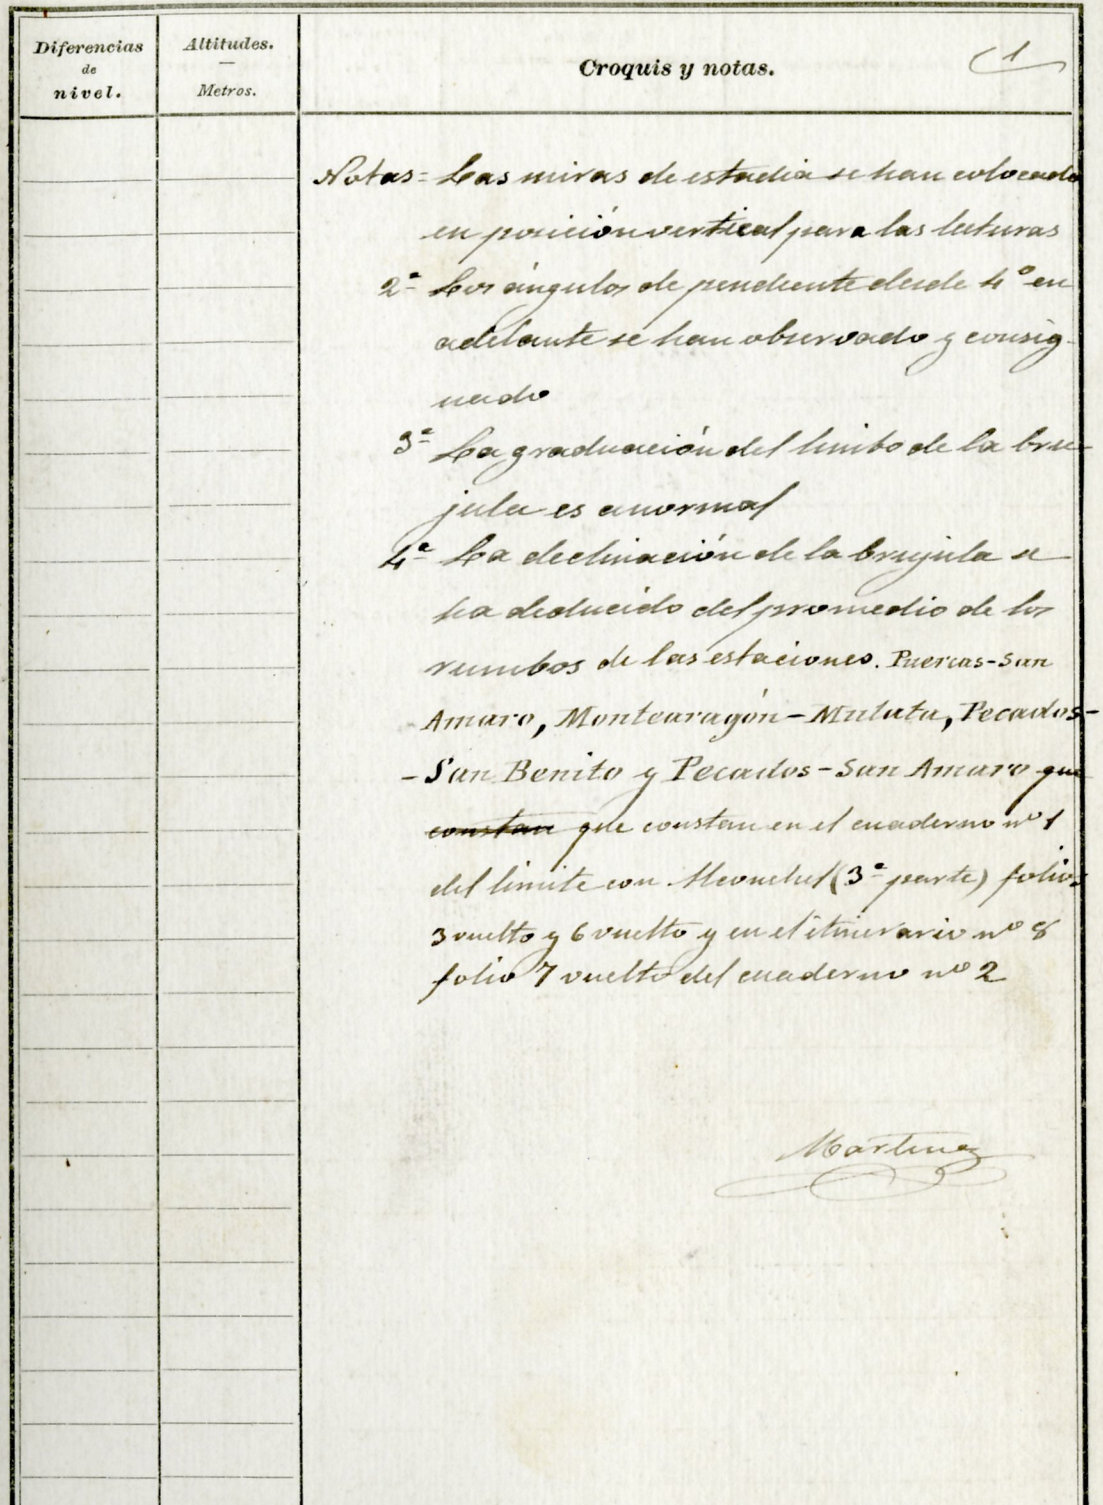 Diferencias
de
nivel.
Altitudes.
Metros.
Croquis y notas.
1
Notas = Las miras de estadia se han colocado
en posición vertical para las lecturas
2ª Los ángulos de pendiente desde 4º en
adelante se han observado y consig-
nado
3ª La graduación del limbo de la bru-
jula es anormal
4ª La declinación de la brujula se
ha deducido del promedio de los
rumbos de las estaciones. Puercas-San
Amaro, Montearagón-Mulata, Pecados-
-San Benito y Pecados-San Amaro que
constan que constan en el cuaderno nº 1
del limite con (3ª parte) folios
3 vuelto y 6 vuelto y en el itinerario nº 8
folio 7 vuelto del cuaderno nº 2
Martinez